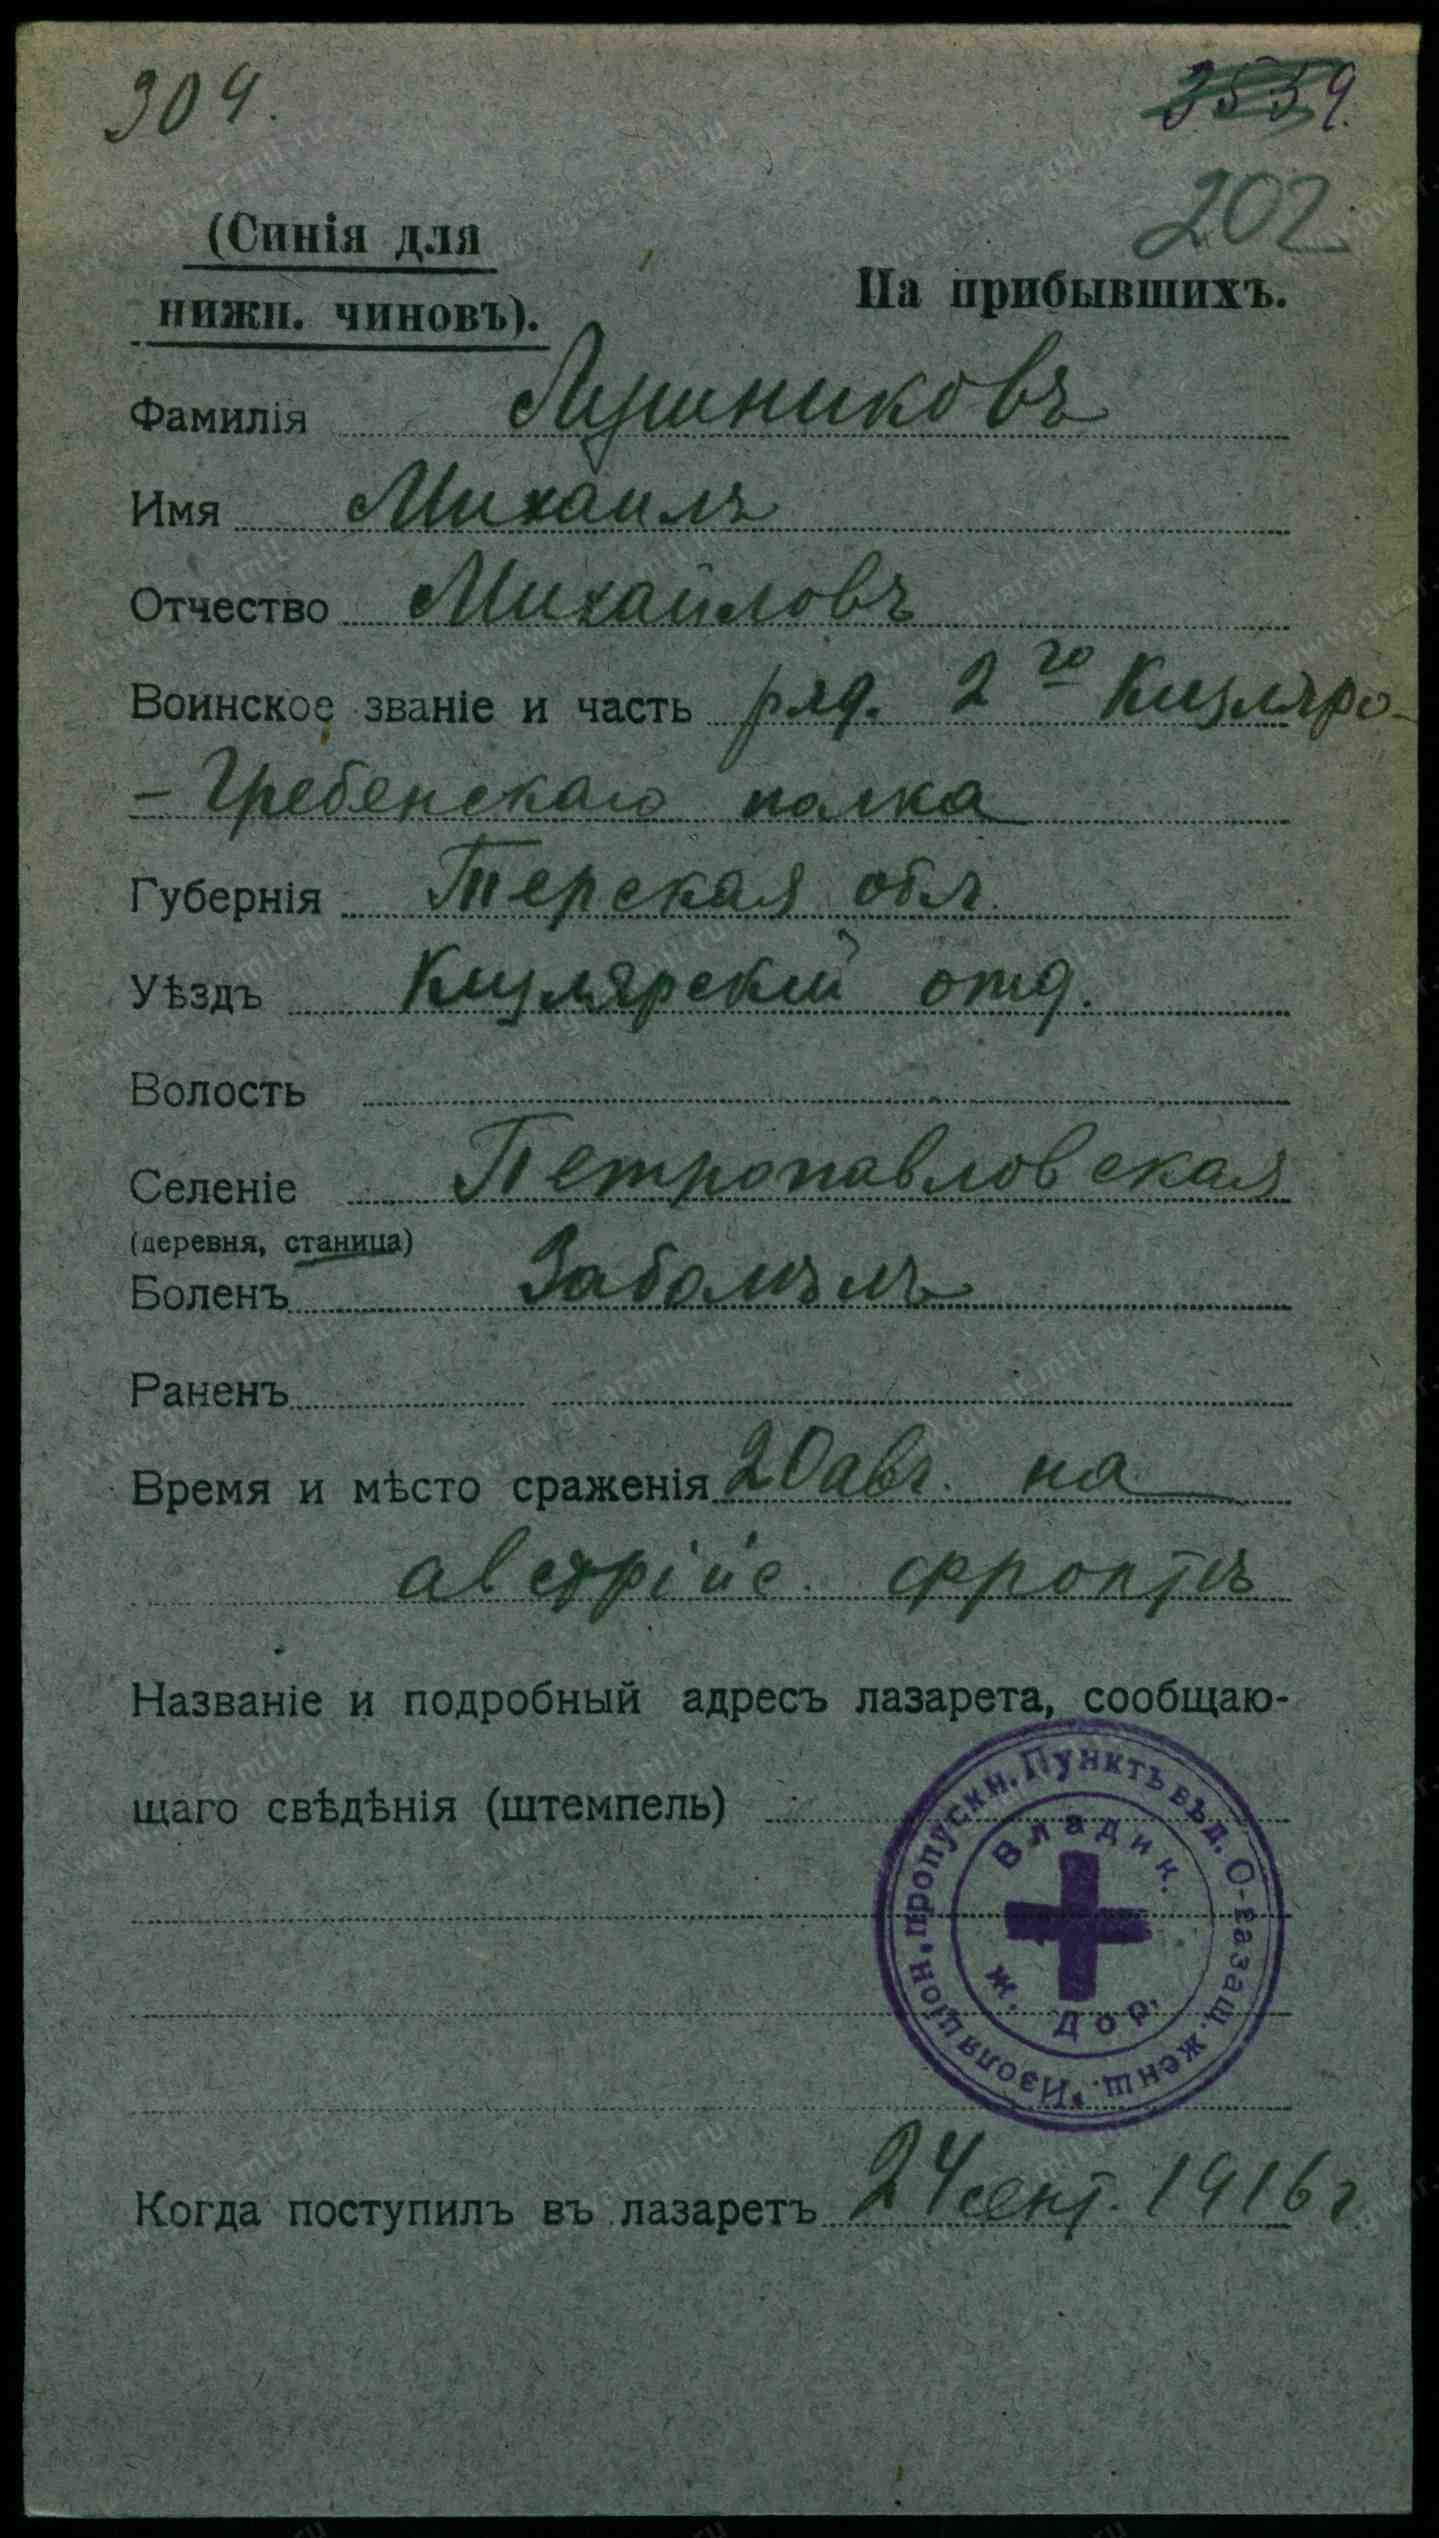 304.
3539.
202
(Синія для
нижн. чиновъ).
На прибывшихъ.
Фамилія Лушниковъ
Имя Михаилъ
Отчество Михайловъ
Воинское званіе и часть ряд. 2го Кизляро-
- Гребенскаго полка
Губернія Терская обл.
Уѣздъ Кизлярскій отд.
Волость
Селеніе Петропавловская
(деревня, станица)
Боленъ Заболѣлъ
Раненъ
Время и мѣсто сраженія 20 авг. на
австрійс. фронтѣ
Названіе и подробный адресъ лазарета, сообщаю-
щаго свѣдѣнія (штемпель)
Изоляціон. пропускн. Пунктъ вѣд. О-ва защ. женщ.
Владик.
ж. Дор.
Когда поступилъ въ лазаретъ 24 сент. 1916 г.
www.gwar.mil.ru